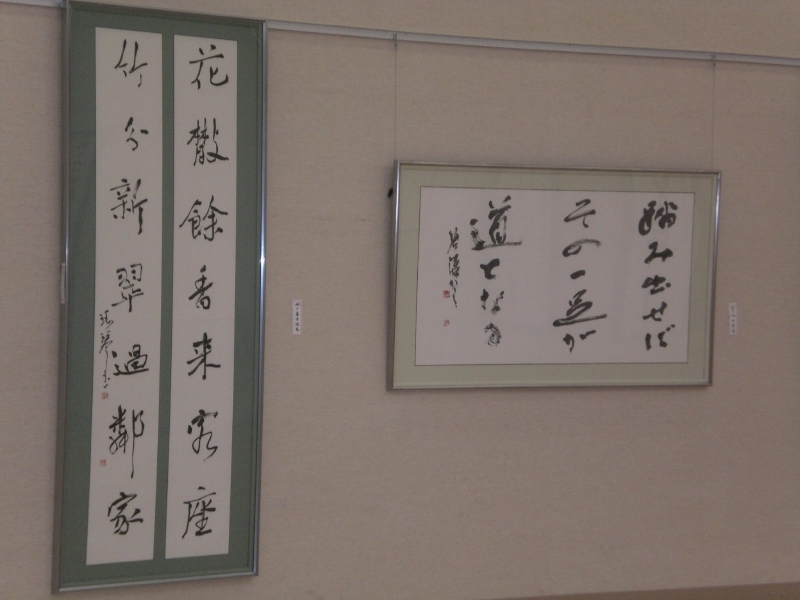 花散餘香来客座
竹分新翠過鄰家
踏み出せば
その一足が
道となる